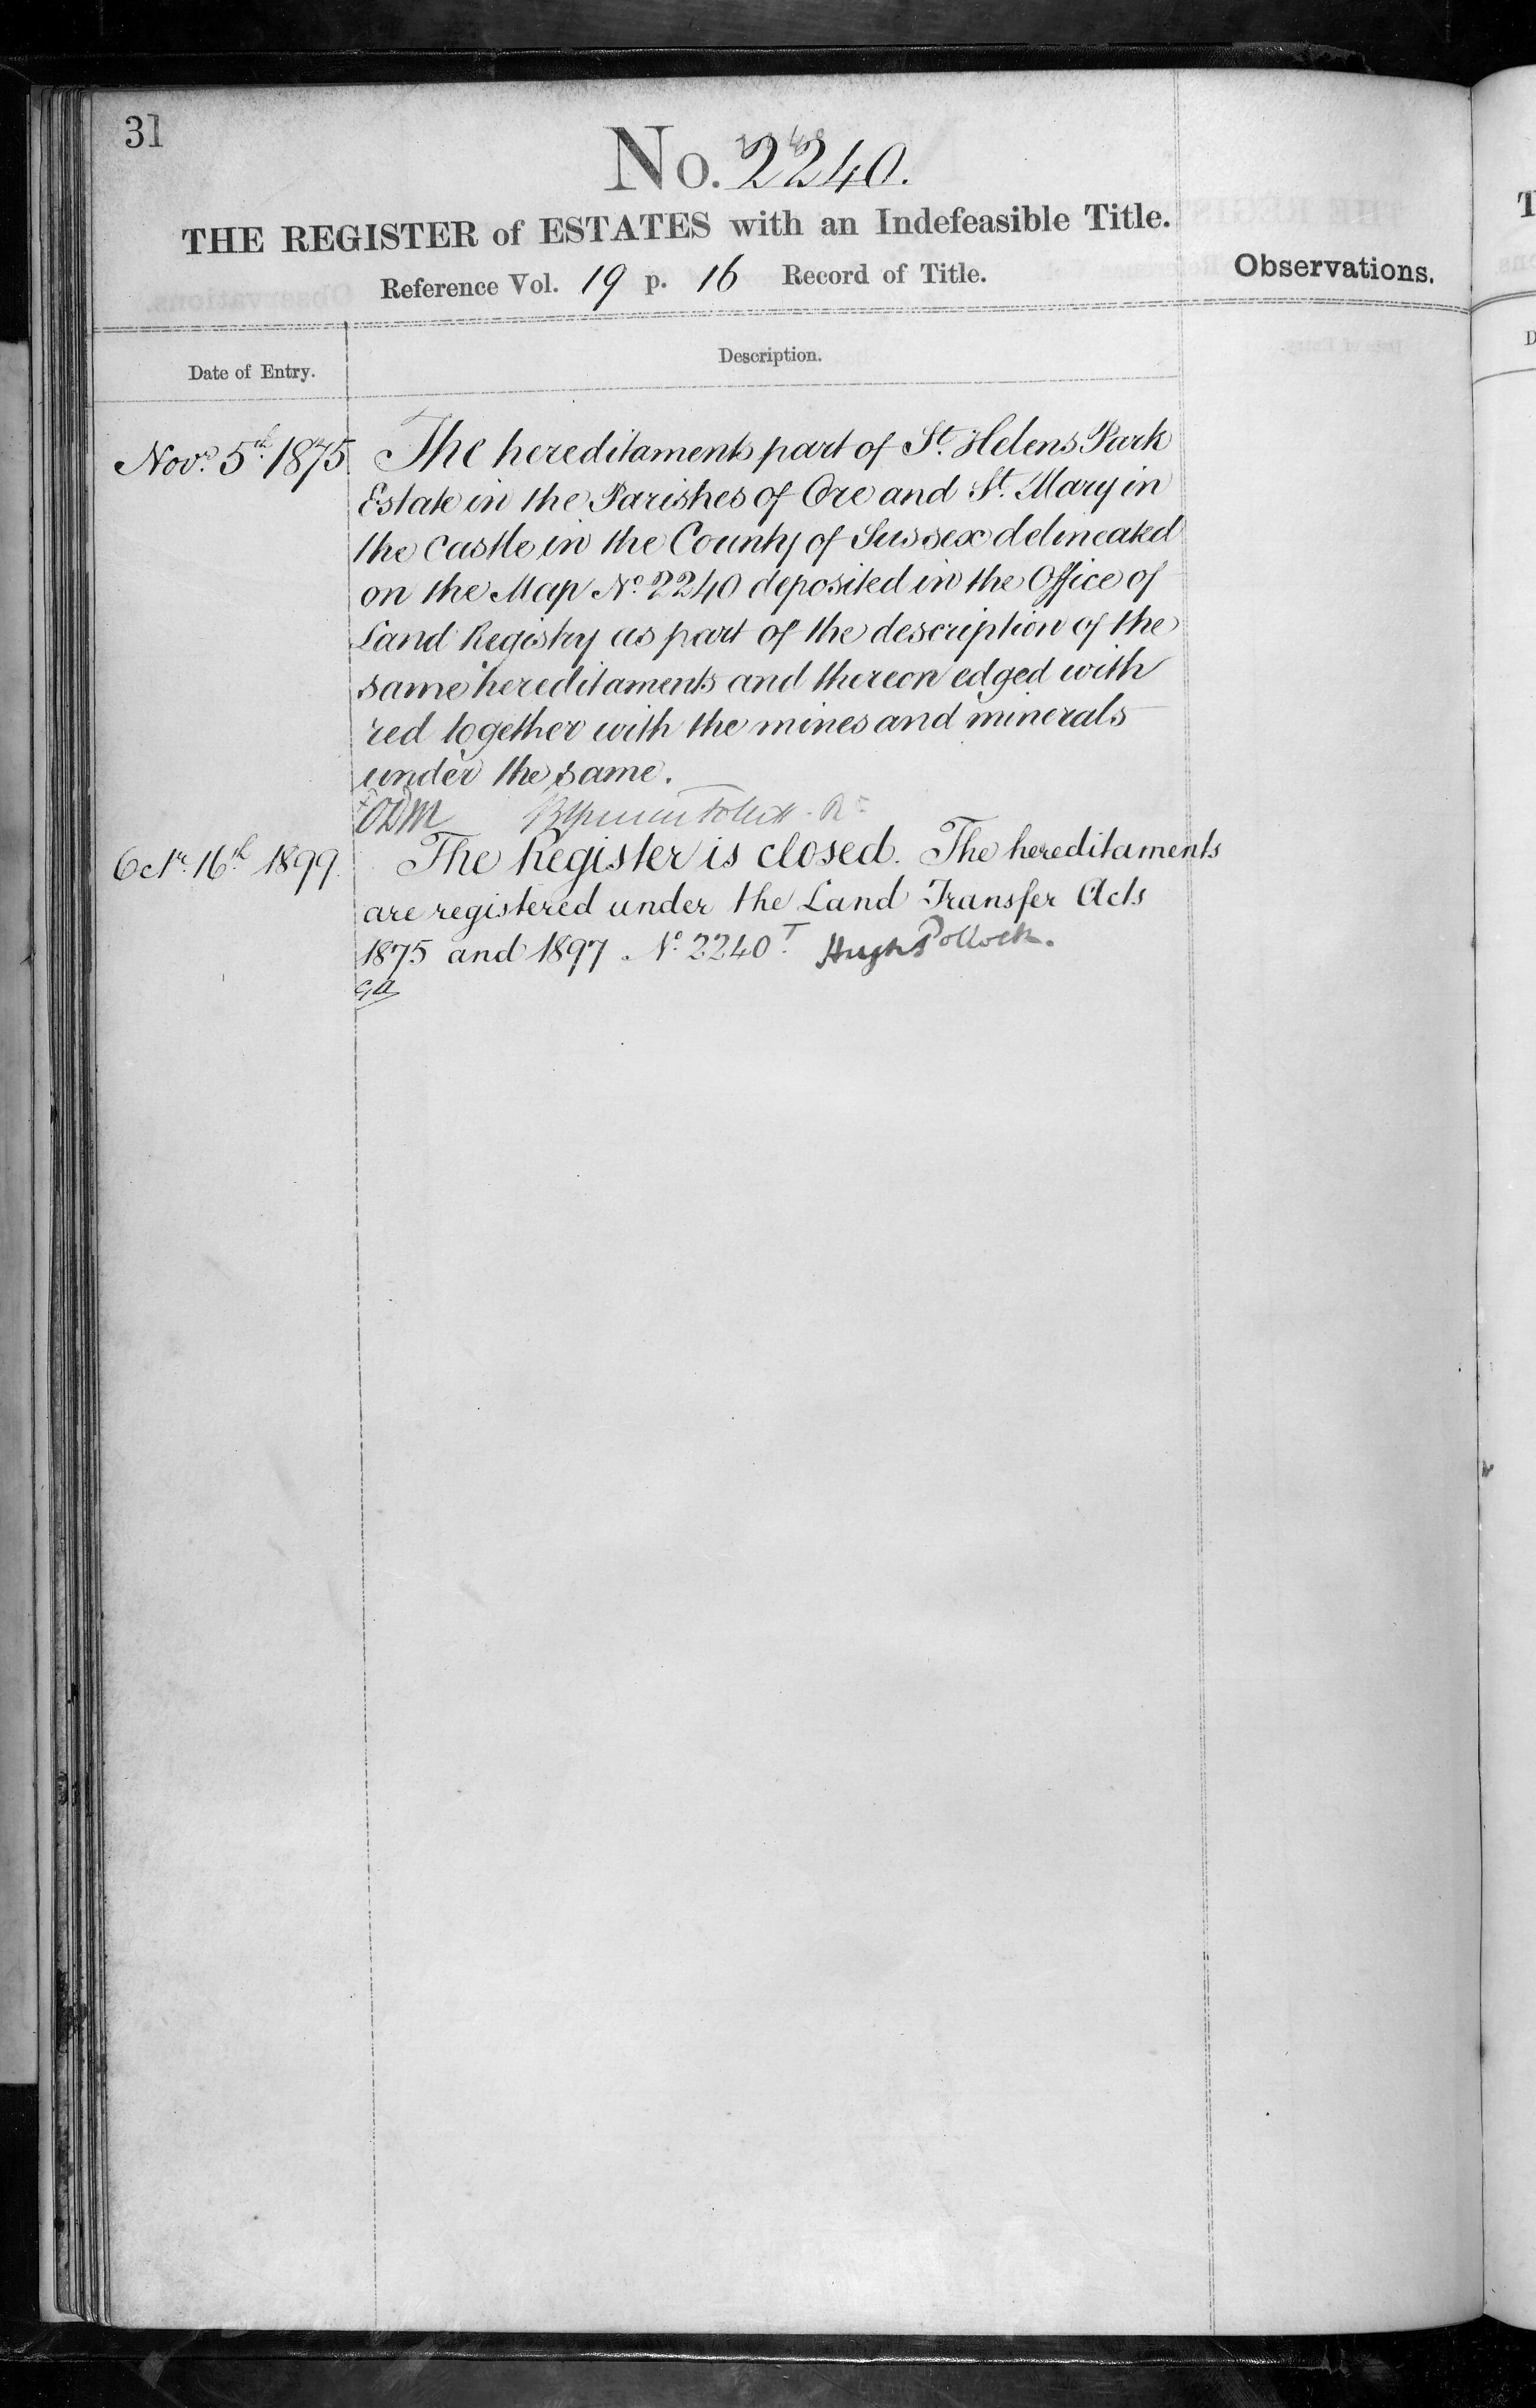 31
No. 2240.
THE REGISTER of ESTATES with an Indefeasible Title.
Reference Vol. 19 p. 16 Record of Title.
Observations.
Date of Entry.
Description.
Novr. 5th. 1875
The hereditaments part of St. Helens Park
Estate in the Parishes of Ore and St. Mary in
the Castle in the County of Sussex delineated
on the Map No. 2240 deposited in the Office of
Land Registry as part of the description of the
same hereditaments and thereon edged with
red together with the mines and minerals
under the same.
ODM
Octr. 16th 1899.
The Register is closed. The hereditaments
are registered under the Land Transfer Acts
1875 and 1897. No. 2240T. Hugh Pollock.